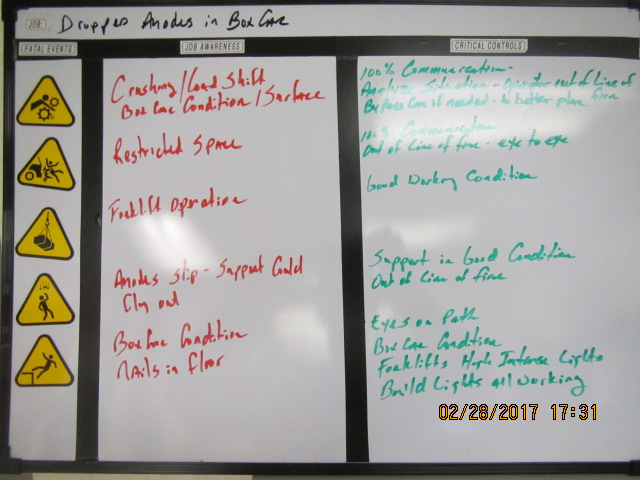 JOB: Dropped Anodes in Box Car
FATAL EVENTS
JOB AWARENESS
CRITICAL CONTROLS
Crushing / Load Shift
Box Car Condition / Surface
Restricted Space
Forklift Operation
Anodes slip - Support Could
fly out
Box Car Condition
Nails in floor
100% Communication -
Analyze Situation - Operator out of Line of
Bypass Car if needed - to better plan fire
100% Communication
Out of Line of fire - eye to eye
Good Working Condition
Support in Good Condition
Out of Line of fire
Eyes on Path
Box Car Condition
Forklifts High Intense Lights
Build Lights all working
02/28/2017 17:31